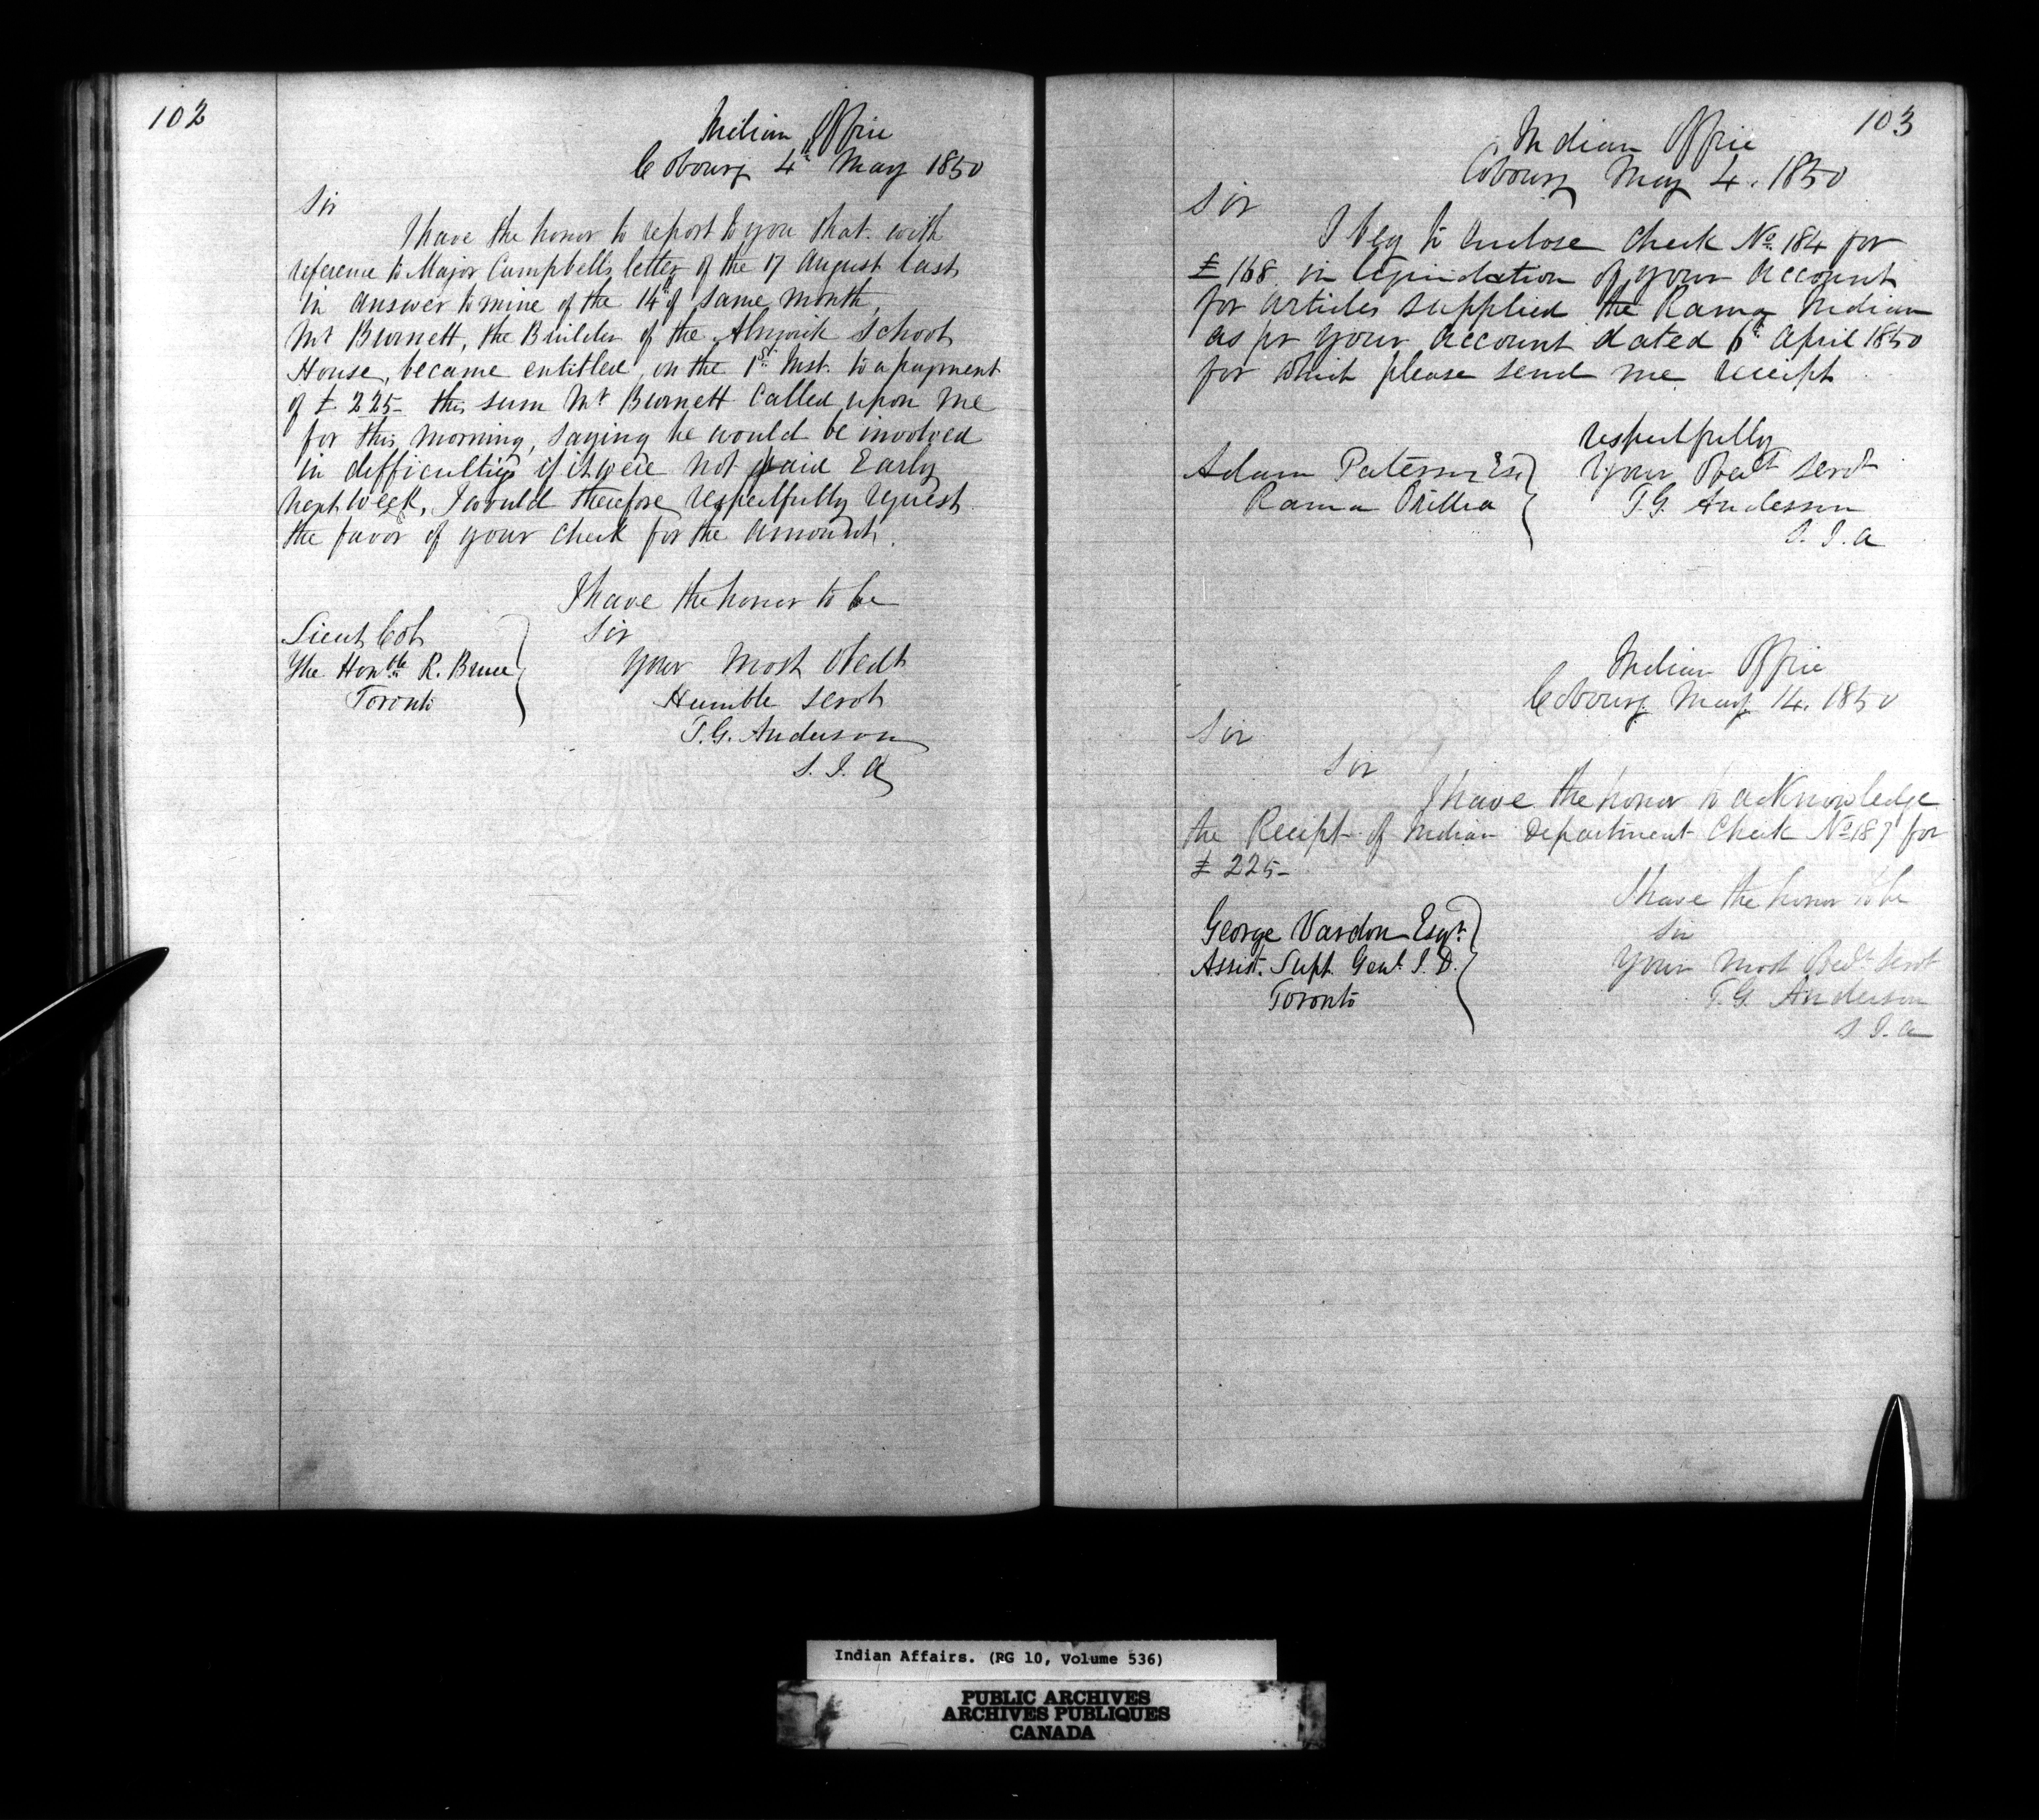 102
Indian Office
Cobourg 4th May 1850
Sir
I have the honor to report to you that with
reference to Major Campbells letter of the 17 August last
in answer to mine of the 14th of same month,
Mr Burnett, the Builder of the Alnwick School
House, became entitled, on the 1st Inst. to a payment
of £ 225- this sum Mr Burnett called upon me
for this morning, saying he would be involved
in difficulties if it were not paid Early
next week, I would therefore respectfully request
the favor of your check for the amount.
I have the honor to be
Sir
Your most obedt
Humble servt
T.G. Anderson
S. I. A
Lieut Col
The Honble R. Bruce
Toronto
103
Indian Office
Cobourg May 4. 1850
Sir
I beg to enclose check No 184 for
£ 168 in liquidation of your account
for articles supplied the Rama Indian
as pr your account dated 6th April 1850
for which please send me receipt
respectfully
Your Obedt servt
T.G. Anderson
S. I. A
Adam Paterson Esq
Rama Orillia
Indian Office
Cobourg May 14. 1850
Sir
Sir
I have the honor to acknowledge
the Receipt of Indian Department Check No 187 for
£ 225-
I have the honor to be
Sir
Your most Obedt servt
T.G. Anderson
S. I. A
George Vardon Esqr.
Assist. Supt. Genl. I. D.
Toronto
Indian Affairs. (RG 10, Volume 536)
PUBLIC ARCHIVES
ARCHIVES PUBLIQUES
CANADA